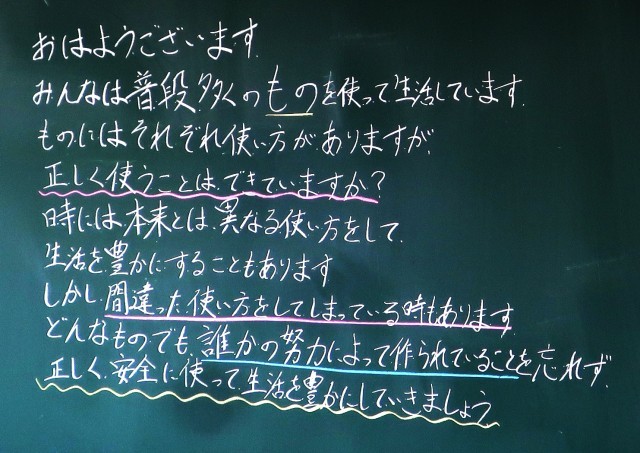 おはようございます.
みんなは普段多くのものを使って生活しています.
ものにはそれぞれ使い方がありますが、
正しく使うことはできていますか?
時には本来とは異なる使い方をして、
生活を豊かにすることもあります
しかし、間違った使い方をしてしまっている時もあります
どんなものでも、誰かの努力によって作られていることを忘れず、
正しく、安全に使って、生活を豊かにしていきましょう